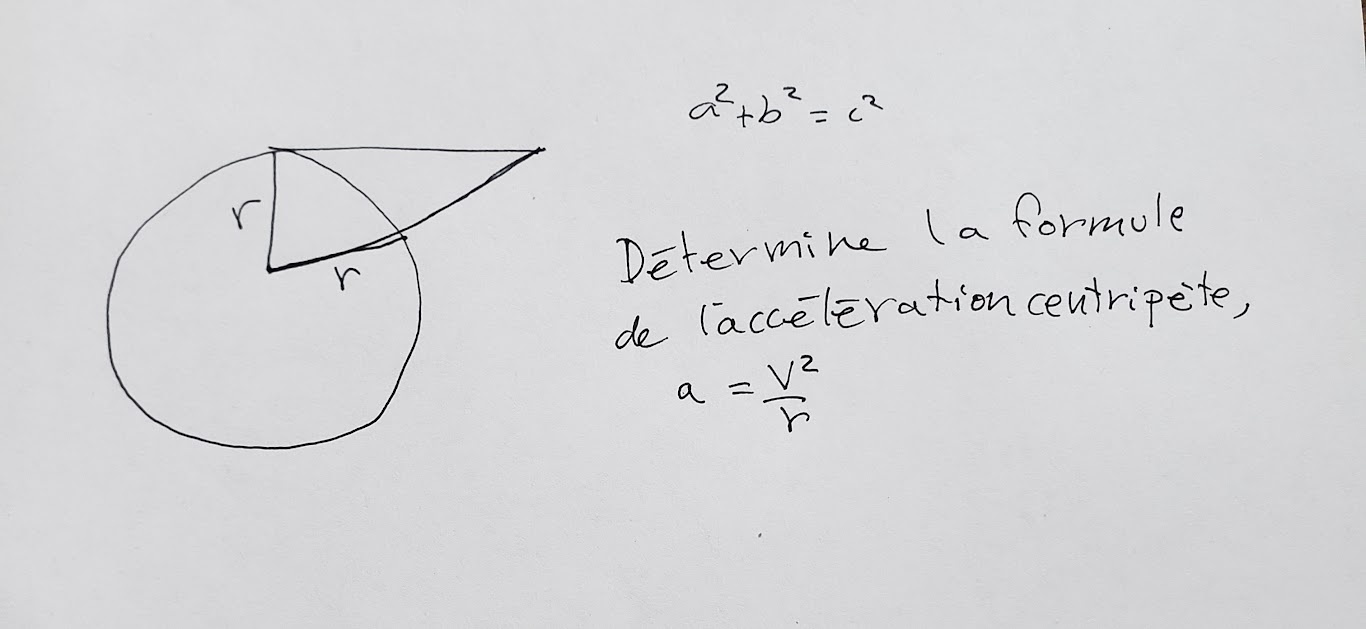 a²+b²=c²
r
r
Détermine la formule
de l'accélération centripète,
a = V²/r